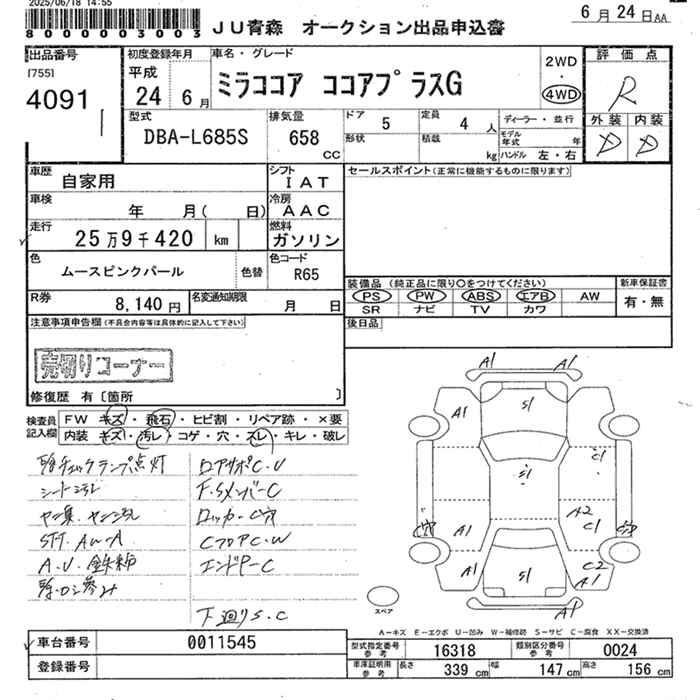 2025/06/18 14:55
8000003003
JU青森 オークション出品申込書
6月24日AA
出品番号
[755]
4091
初度登録年月
平成
24 6月
車名・グレード
ミラココア ココアプラスG
2WD
・
4WD
評価点
R
外装 内装
D D
型式
DBA-L685S
排気量
658
CC
ドア 5
形状
定員 4 人
積載 kg
ディーラー・並行
モデル年式 年
ハンドル 左・右
車歴
自家用
シフト
IAT
車検
年 月( 日)
冷房
AAC
走行
25万9千420 km
燃料
ガソリン
色
ムースピンクパール
色替
色コード
R65
R券
8,140円
名変通知期限
月 日
セールスポイント(正常に機能するものに限ります)
装備品 (純正品に限り○をつけてください)
PS PW ABS エアB AW
SR ナビ TV カワ
新車保証書
有・無
後日品
注意事項申告欄(不具合内容等は具体的に記入して下さい)
売切りコーナー
修復歴 有〔箇所 〕
検査員
記入欄
FW キズ・飛石・ヒビ割・リペア跡・×要
内装 キズ・汚レ・コゲ・穴・スレ・キレ・破レ
チェックランプ点灯
ロアサポC.U
F.SメンバーC
ロッカーC穴
STT.AW-A
CフロアC.W
エンドPC
下廻りS.C
A1 A1
A1 S1 A1
S1 C1
A2
C1
A1
A1 S1 C2
A1
A1
スペア
A-キズ E-エクボ U-凹み W-補修跡 S-サビ C-腐食 XX-交換済
車台番号 0011545
登録番号
型式指定番号
参考
16318
類別区分番号
参考
0024
車庫証明用
参考
長さ 339 cm 幅 147 cm 高さ 156 cm